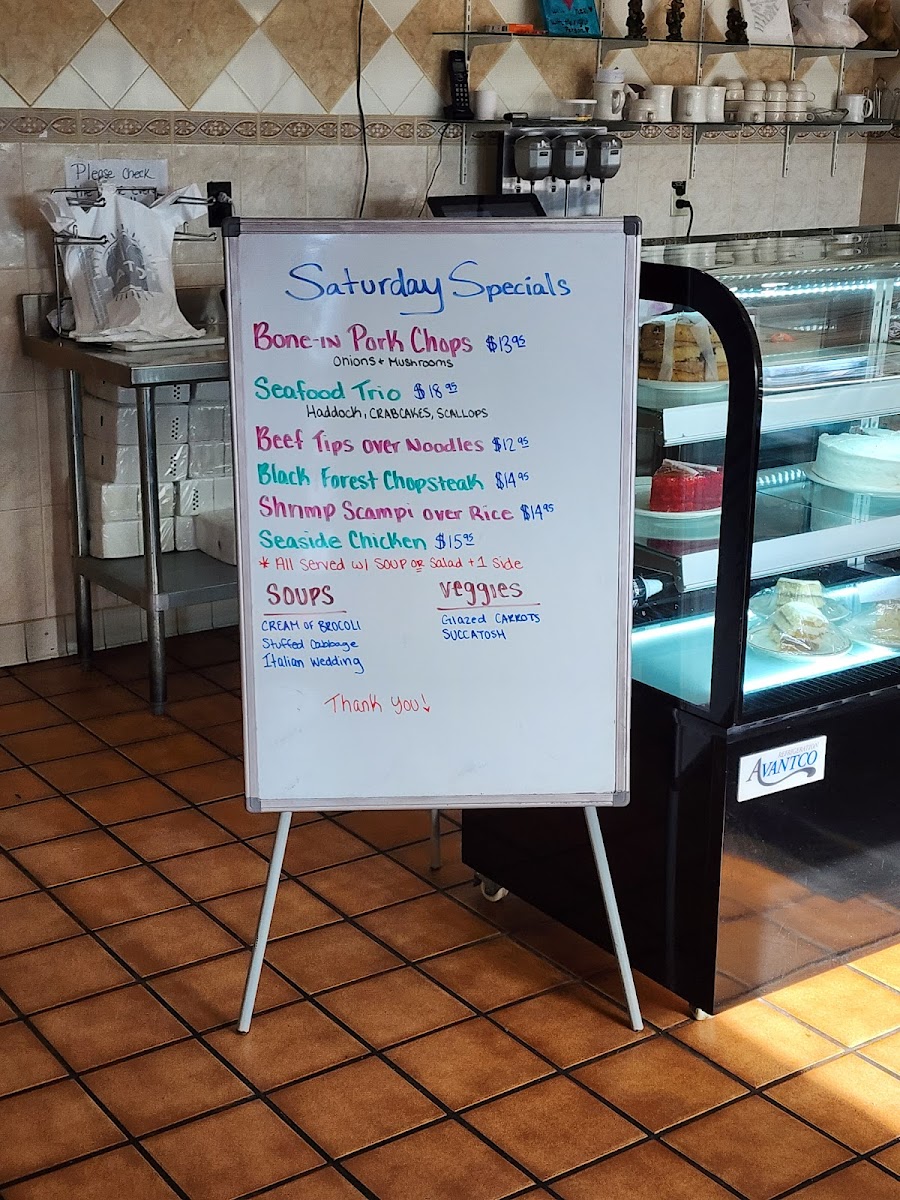 Please Check
Saturday Specials
Bone-in Pork Chops $13.95
Onions + Mushrooms
Seafood Trio $18.95
Haddock, CRABCAKES, SCALLOPS
Beef Tips over Noodles $12.95
Black Forest Chopsteak $14.95
Shrimp Scampi over Rice $14.95
Seaside Chicken $15.95
* All Served w/ Soup or Salad + 1 Side
Soups
CREAM OF BROCOLI
Stuffed Cabbage
Italian Wedding
Veggies
Glazed CARROTS
SUCCATOSH
Thank You!
REFRIGERATION
AVANTCO